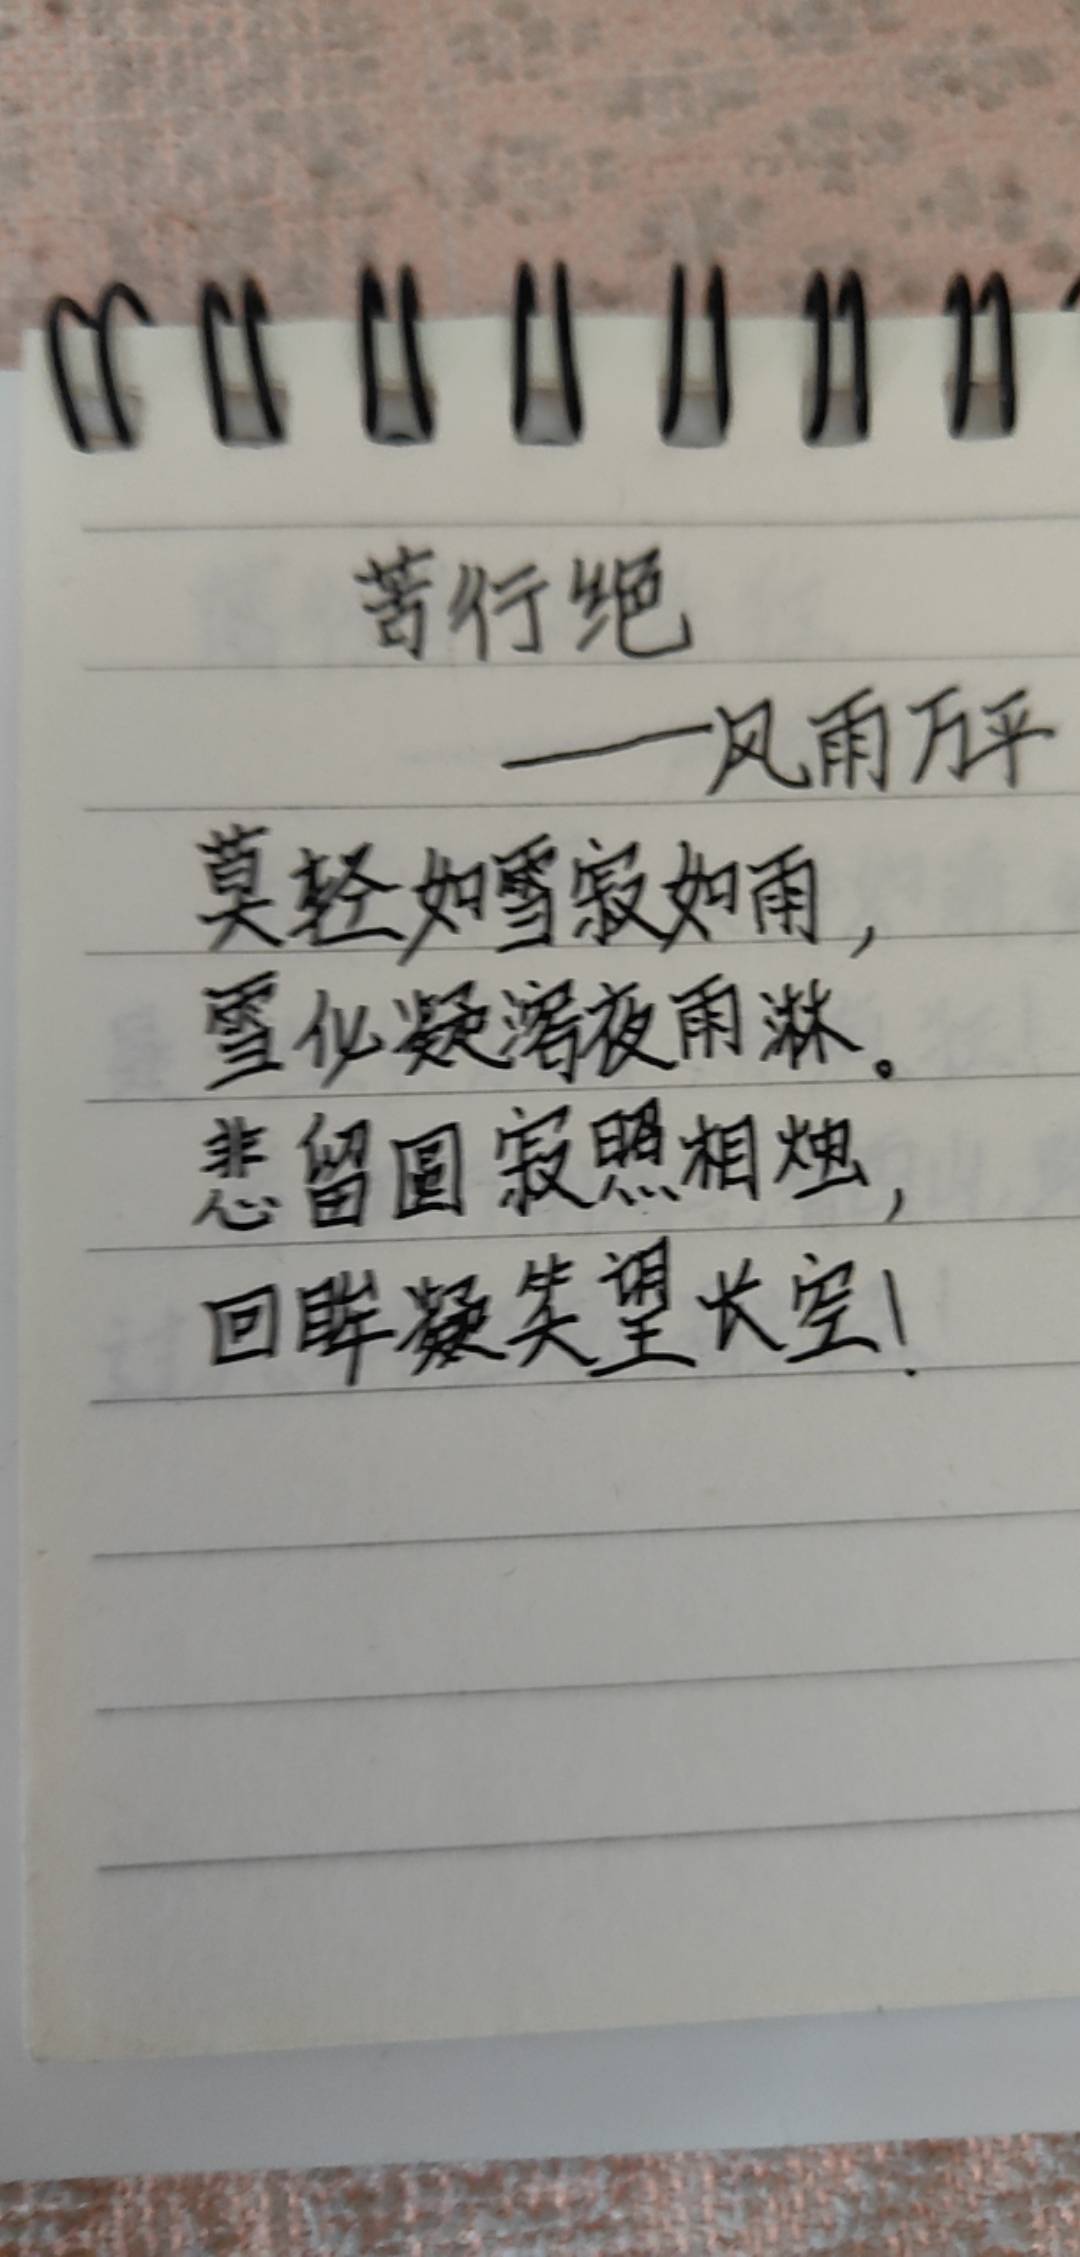 苦行绝
——风雨万平
莫轻如雪寂如雨，
雪似凝泻夜雨淋。
悲留圆寂照相烛，
回眸凝笑望长空！